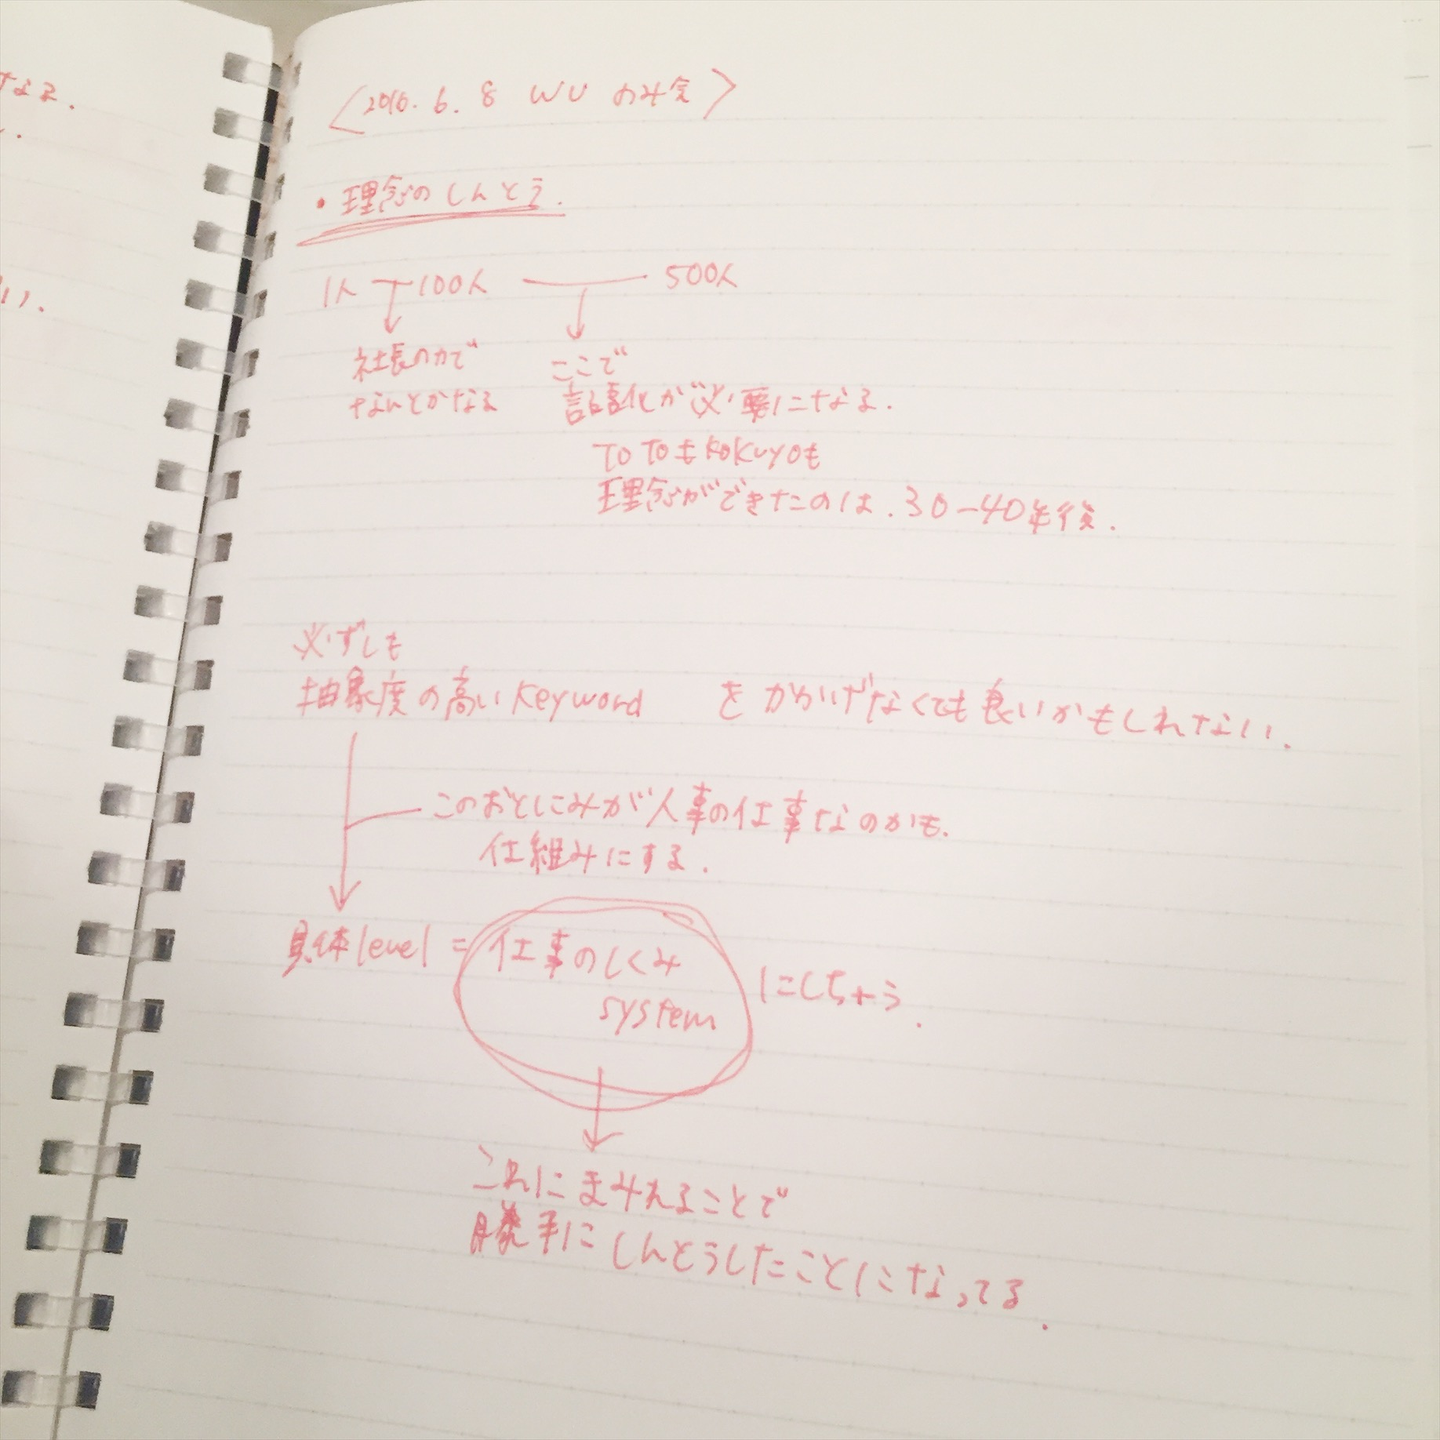 なる.
い.
〈2016. 6. 8 WU のみ会〉
・理念のしんとう.
1人 100人 500人
社長の力で
なんとかなる
ここで
言語化が必要になる.
TOTOもKOKUYOも
理念ができたのは. 30-40年後.
必ずしも
抽象度の高いkeyword をかかげなくても良いかもしれない.
このおとしこみが人事の仕事なのかも.
仕組みにする.
具体level = 仕事のしくみ
system
にしちゃう.
これにまみれることで
勝手にしんとうしたことになってる.